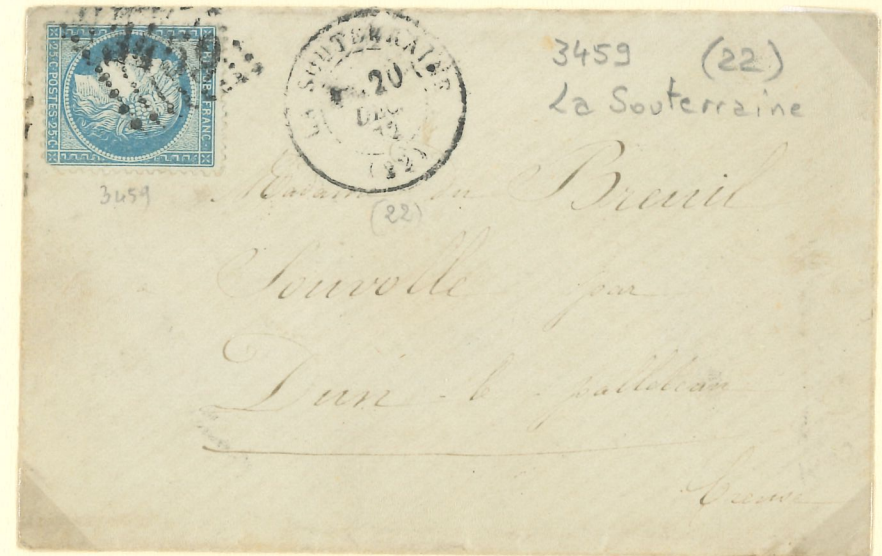 25 C POSTES 25 C
FRANC
3459
LA SOUTERRAINE
20
DEC.
72
(22)
3459 (22)
La Souterraine
3459
(22)
Madame du Breuil
Souvolle par
Dun - le - palleteau
Creuse